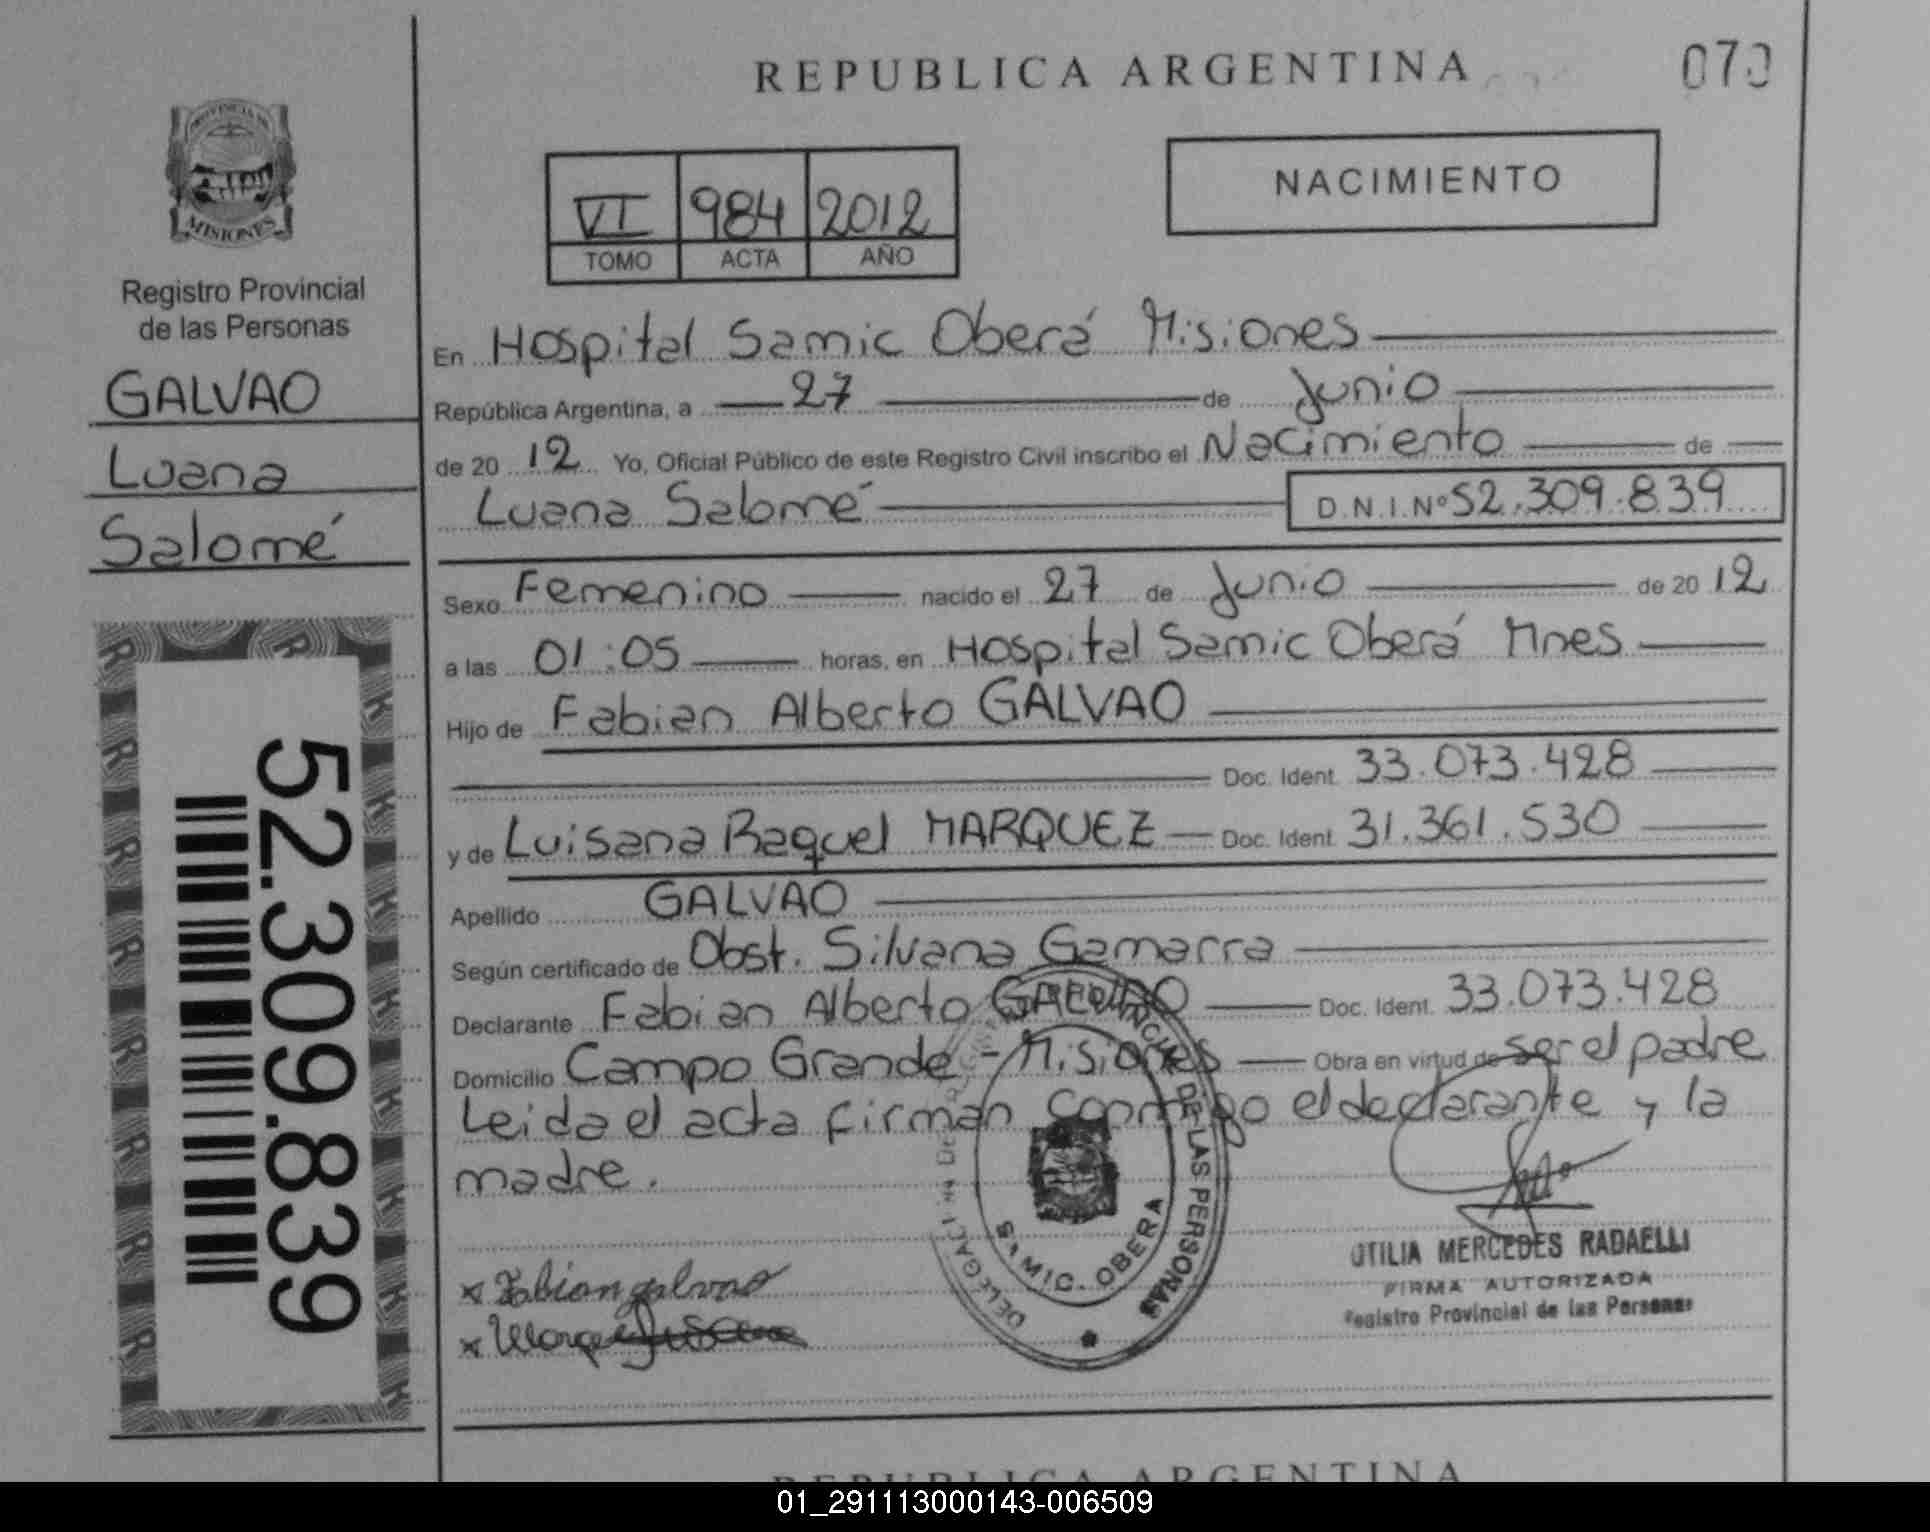 REPUBLICA ARGENTINA
070
PROVINCIA DE
MISIONES
Registro Provincial
de las Personas
GALVAO
Luana
Salomé
52.309.839
VI 984 2012
TOMO ACTA AÑO
NACIMIENTO
En Hospital Samic Oberá Misiones
República Argentina, a 27 de Junio
de 20 12 Yo, Oficial Público de este Registro Civil inscribo el Nacimiento de
Luana Salomé D.N.I.Nº 52.309.839
Sexo Femenino nacido el 27 de Junio de 20 12
a las 01:05 horas, en Hospital Samic Oberá Mnes
Hijo de Fabian Alberto GALVAO
Doc. Ident. 33.073.428
y de Luisana Raquel MARQUEZ Doc. Ident. 31.361.530
Apellido GALVAO
Según certificado de Obst. Silvana Gamarra
Declarante Fabian Alberto GALVAO Doc. Ident. 33.073.428
Domicilio Campo Grande - Misiones Obra en virtud de ser el padre
Leida el acta firman conmigo el declarante y la
madre.
x Fabian galvao
x
DE LAS PERSONAS
OBERA
OTILIA MERCEDES RADAELLI
FIRMA AUTORIZADA
Registro Provincial de las Personas
REPUBLICA ARGENTINA
01_291113000143-006509